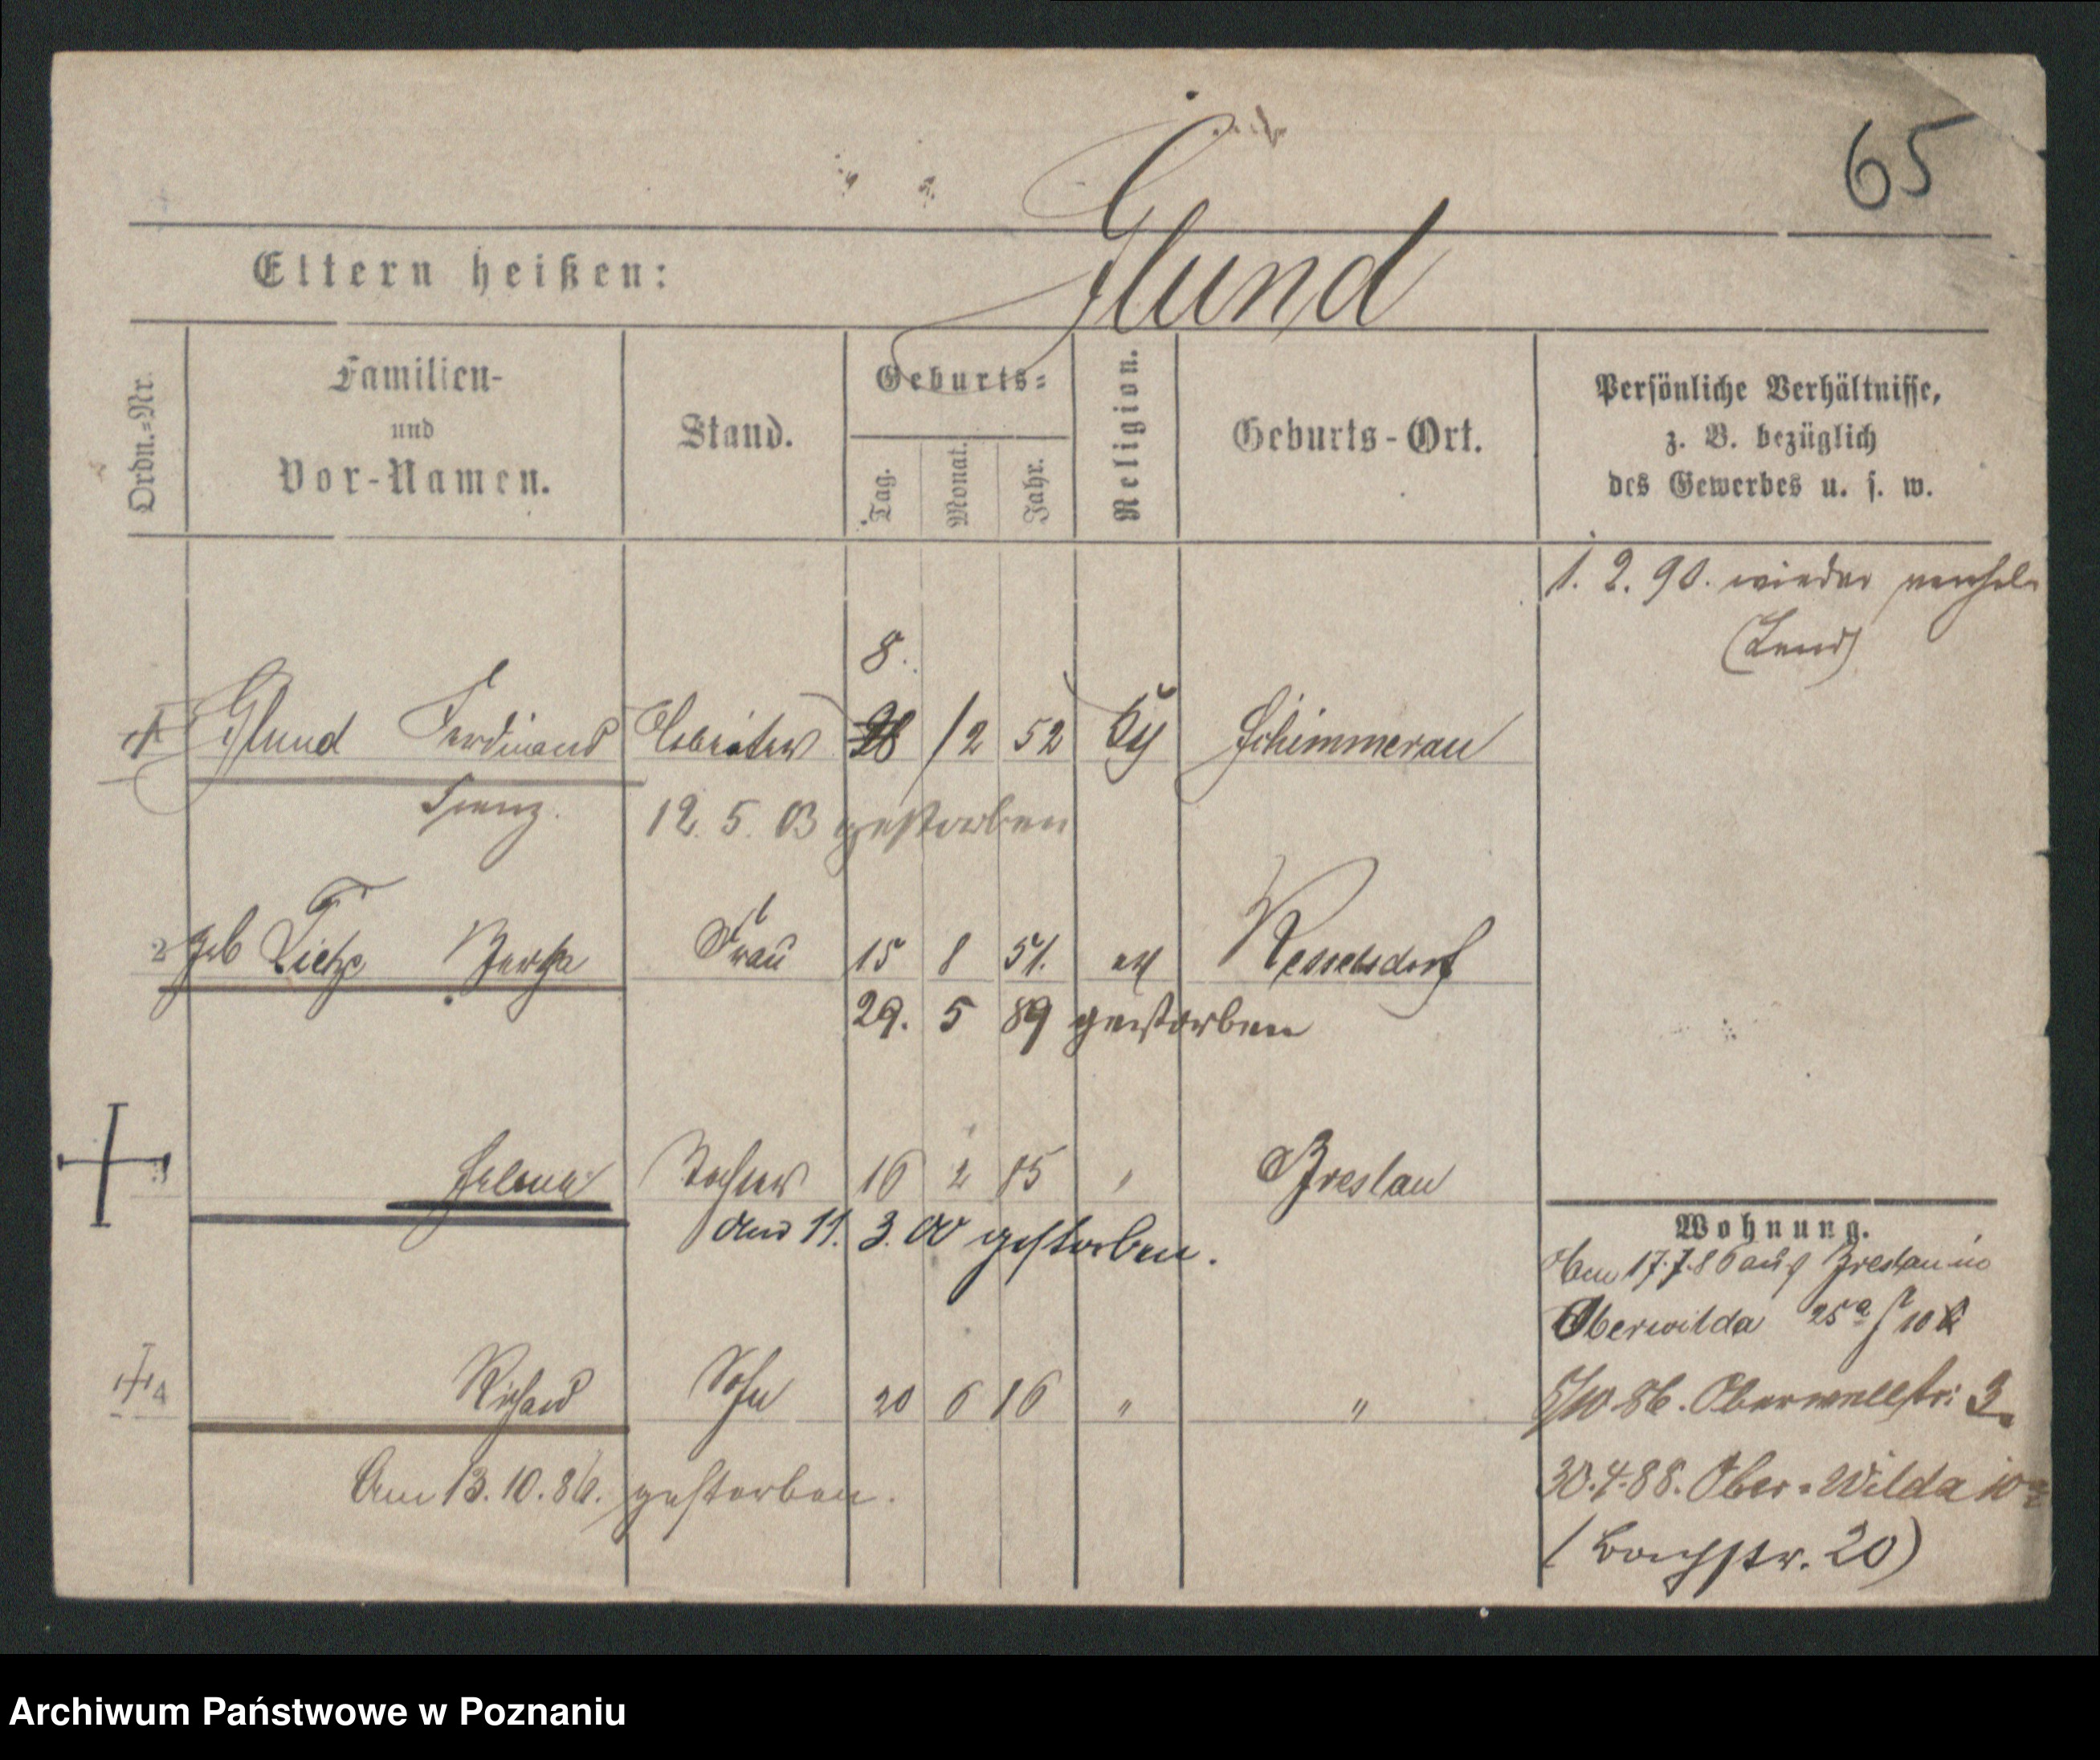 65
Glund
Eltern heißen:
Ordn.-Nr.
Familien-
und
Vor-Namen.
Stand.
Geburts-
Tag.
Monat.
Jahr.
Religion.
Geburts-Ort.
Persönliche Verhältnisse,
z. B. bezüglich
des Gewerbes u. s. w.
1. 2. 90. wieder
8.
1 Glund Ferdinand Arbeiter 28 12 52 Schimmerau
Franz. 12. 5. 03 gestorben
2 geb Tietze Bertha Frau 15 8 51. ev Kesselsdorf
29. 5 89 gestorben
3 Helena Tochter 16 2 85 " Breslau
den 11. 3. 00 gestorben.
Wohnung.
17.7.86 aus Breslau in
Oberwilda 25a
4 Richard Sohn 20 6 86 " "
5/10 86. Oberwallstr: 3.
Am 13. 10. 86. gestorben.
30.4.88. Ober-Wilda 10a
( Bachstr. 20)
Archiwum Państwowe w Poznaniu